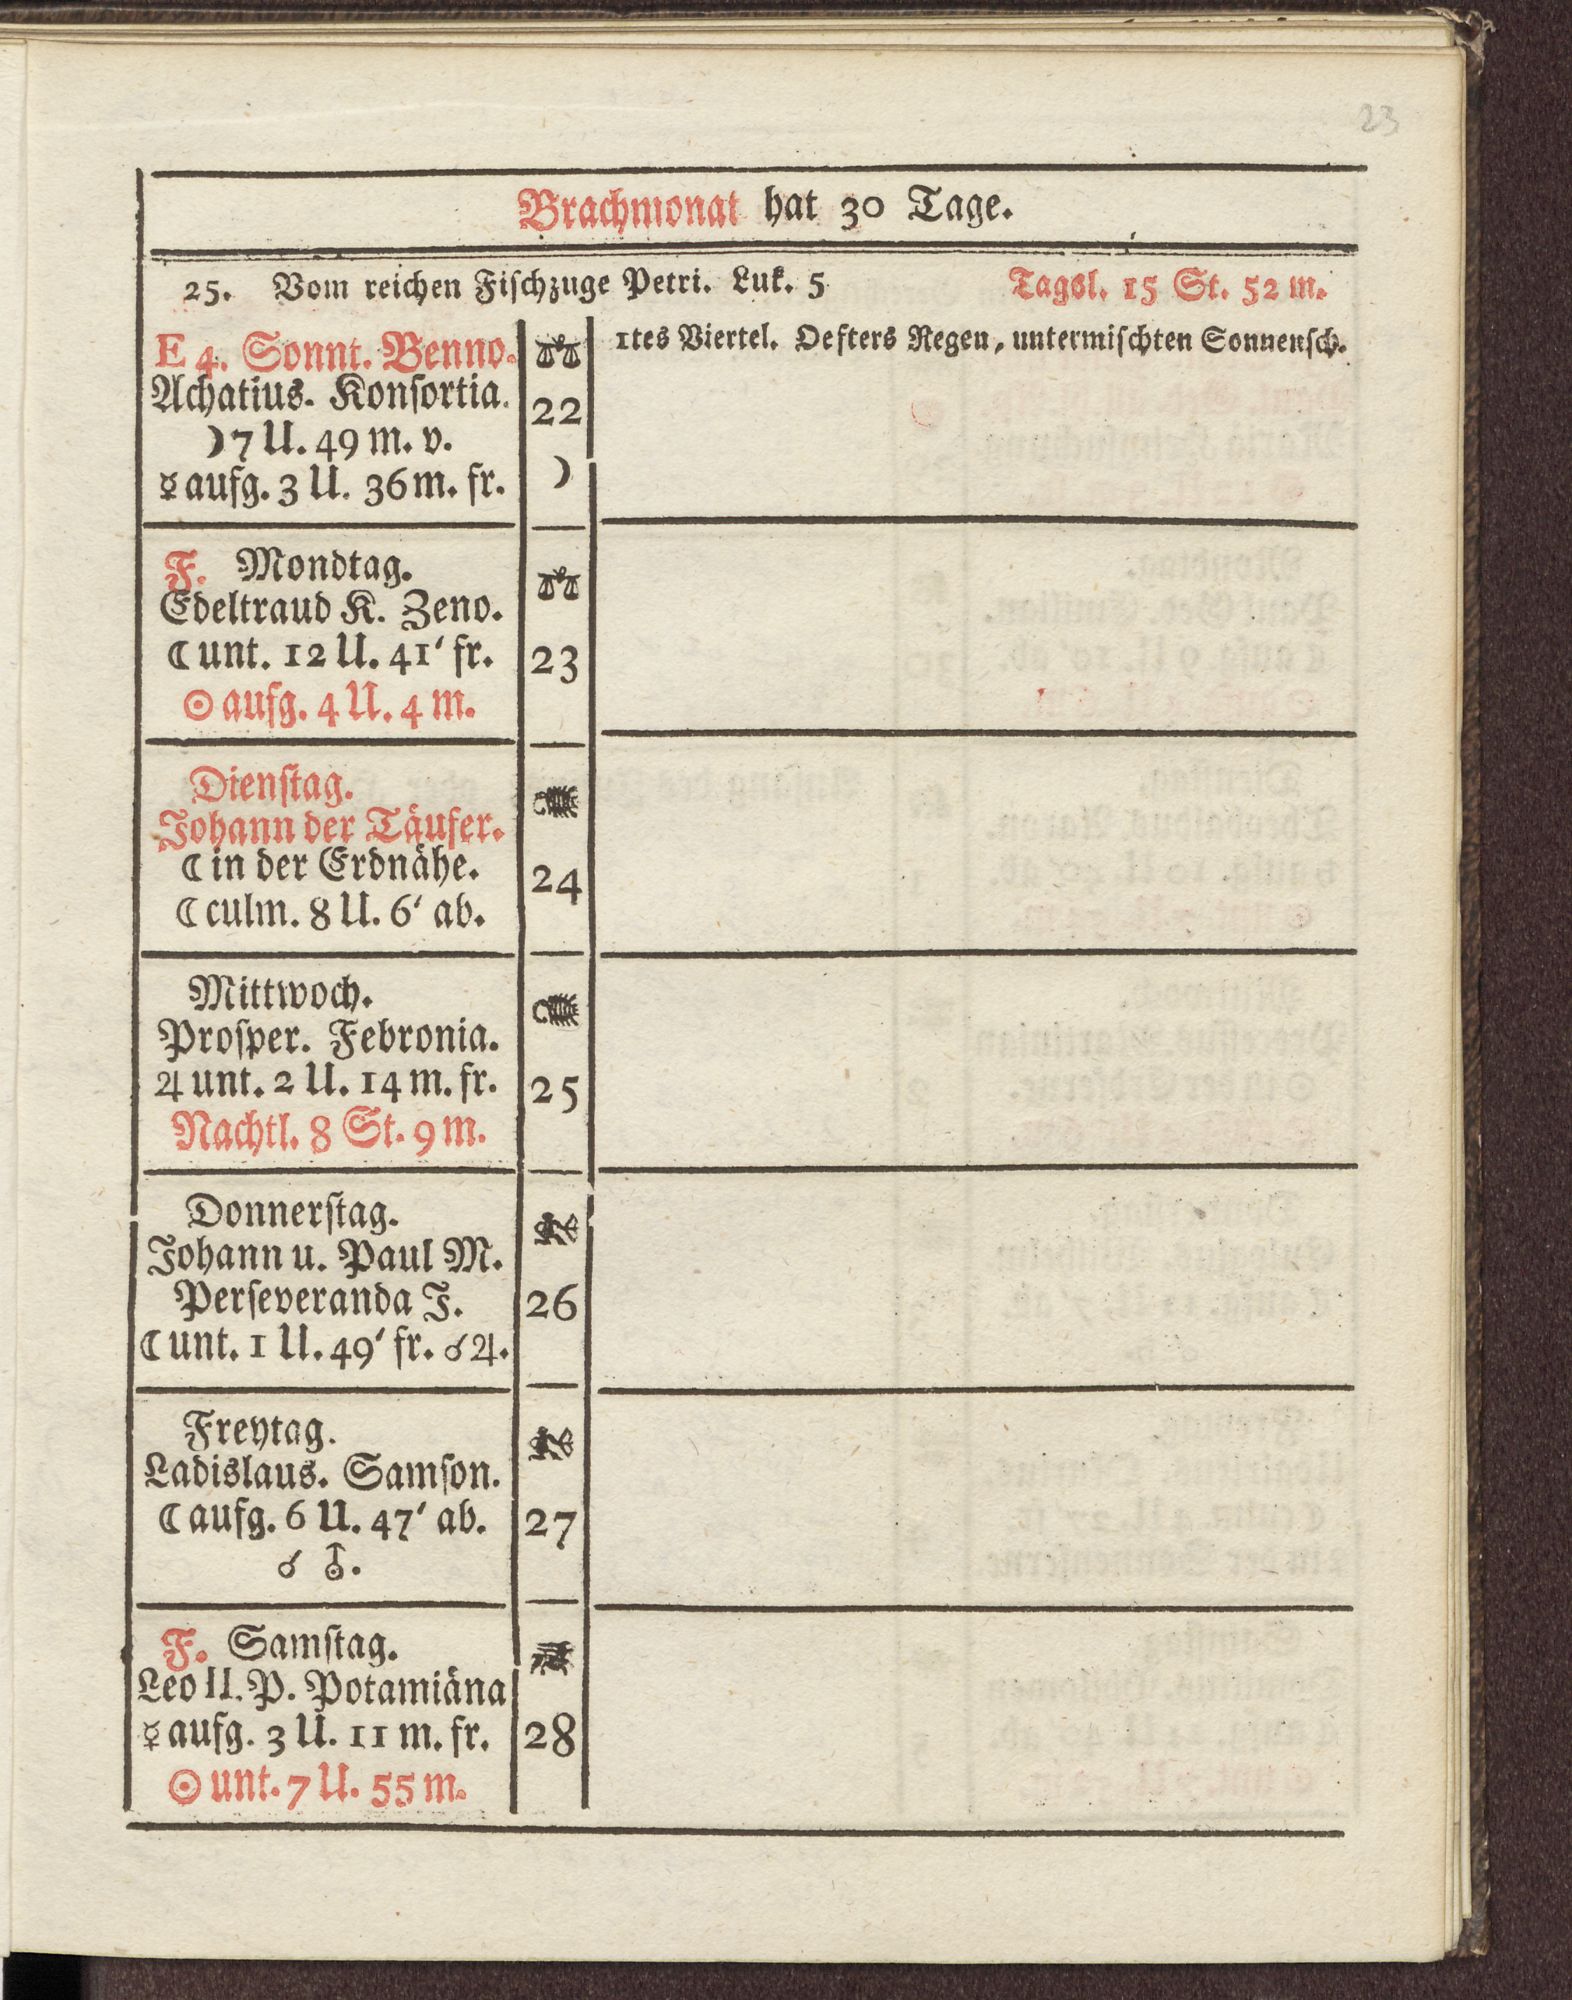 23
Brachmonat hat 30 Tage.
25. Vom reichen Fiſchzuge Petri. Luk. 5 Tagsl. 15 St. 52 m.
E 4. Sonnt. Benno. ♎ 1tes Viertel. Oefters Regen, untermiſchten Sonnenſch.
Achatius. Konſortia. 22
☽ 7 U. 49 m. v.
☿ aufg. 3 U. 36 m. fr. ☽
F. Mondtag. ♎
Edeltraud K. Zeno.
☾ unt. 12 U. 41' fr. 23
☉ aufg. 4 U. 4 m.
Dienſtag. ♏
Johann der Täufer.
☾ in der Erdnähe. 24
☾ culm. 8 U. 6' ab.
Mittwoch. ♏
Proſper. Febronia.
♃ unt. 2 U. 14 m. fr. 25
Nachtl. 8 St. 9 m.
Donnerſtag. ♐
Johann u. Paul M.
Perſeveranda J. 26
☾ unt. 1 U. 49' fr. ☌ ♃.
Freytag. ♐
Ladislaus. Samſon.
☾ aufg. 6 U. 47' ab. 27
☌ ⛢.
F. Samſtag. ♑
Leo II. P. Potamiäna
☿ aufg. 3 U. 11 m. fr. 28
☉ unt. 7 U. 55 m.